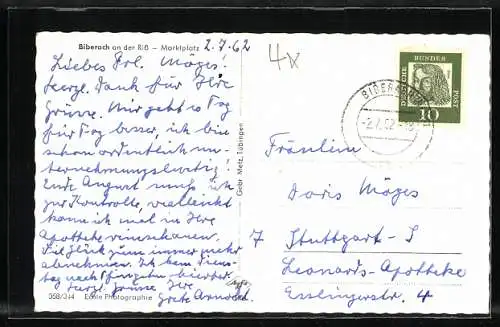 Biberach an der Riß – Marktplatz 2.7.62
Liebes Frl. Möges!
Herzl. Dank für Ihre
Grüsse. Mir geht es Tag
für Tag besser, ich bin
schon ordentlich un-
ternehmungslustig!
Ende August muß ich
zur Kontrolle, vielleicht
kann ich mal in Ihre
Apotheke reinschauen.
immer mehr
abnehmen. Ich kam Diens-
tag nach
Herzl. Grüsse Ihre
Grete Arnold
058/314 Echte Photographie
Gebr. Metz, Tübingen
4x
DEUTSCHE BUNDESPOST
10
BIBERACH
-2.7.62
Fräulein
Doris Möges
7 Stuttgart-S
Leonards-Apotheke
Esslingerstr. 4